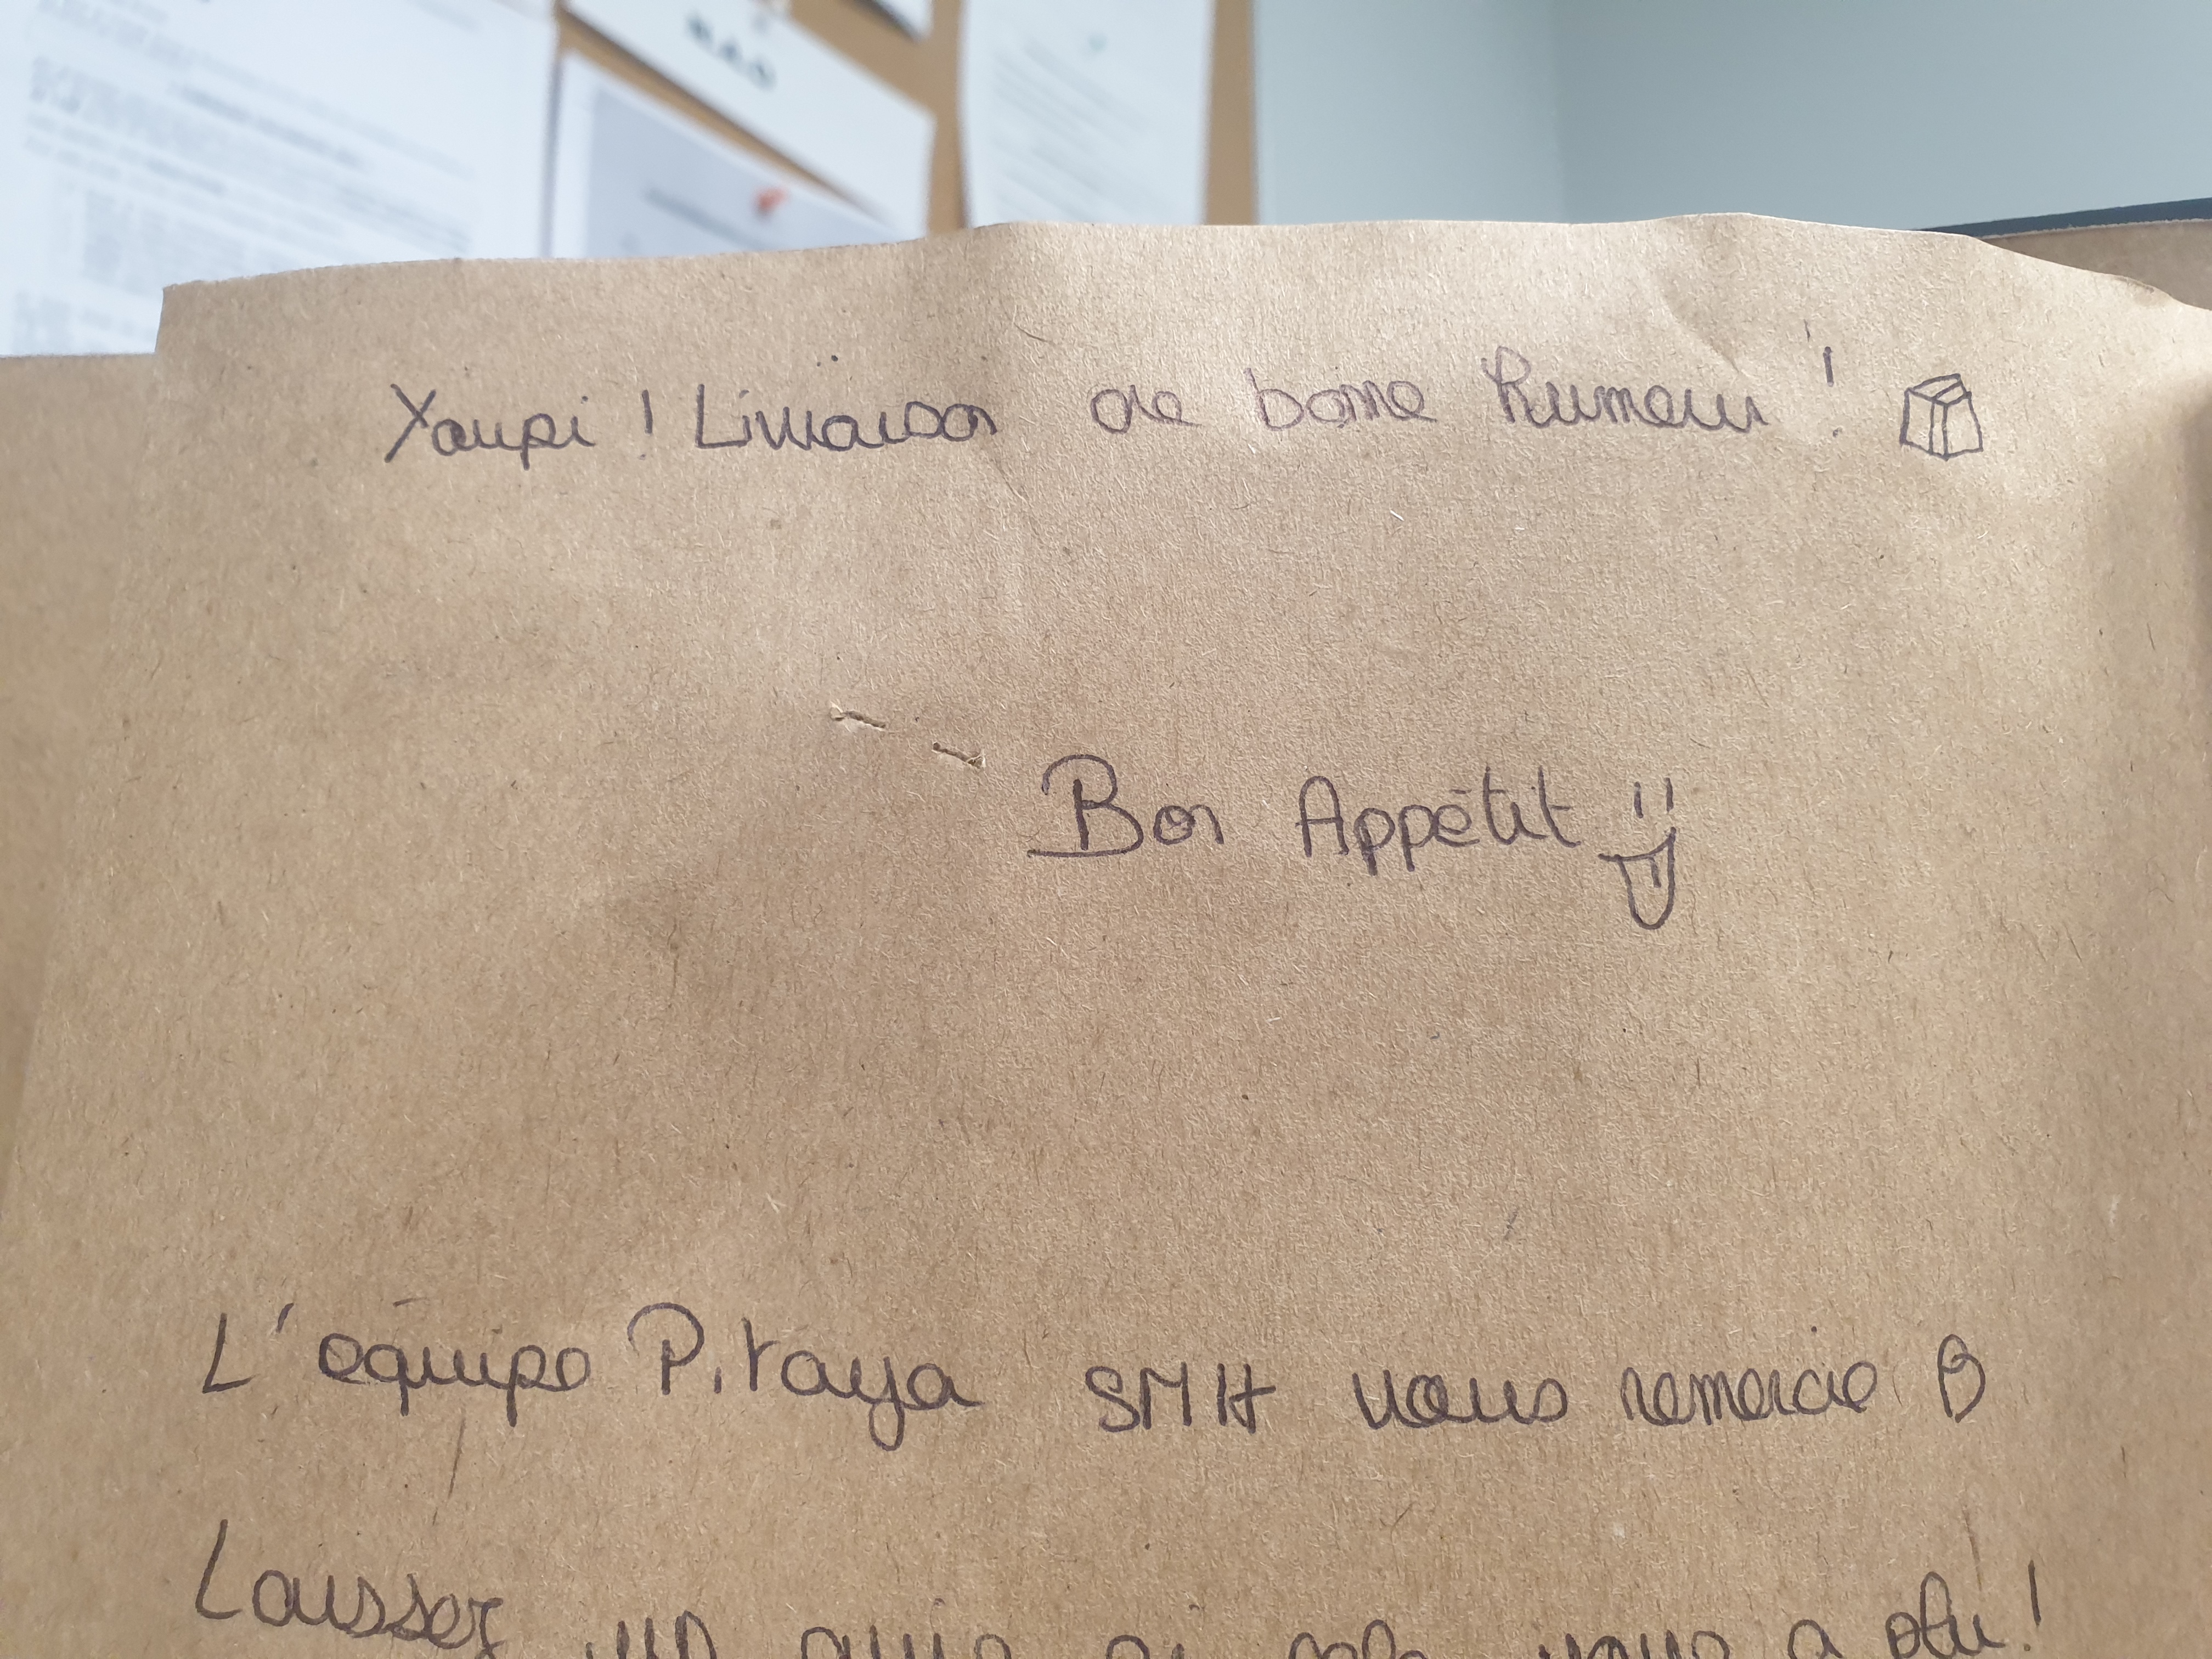 Youpi ! Livraison de bonne humeur !
Bon Appétit
L'équipe Pitaya SMH vous remercie
Laissez un avis si cela vous a plu !